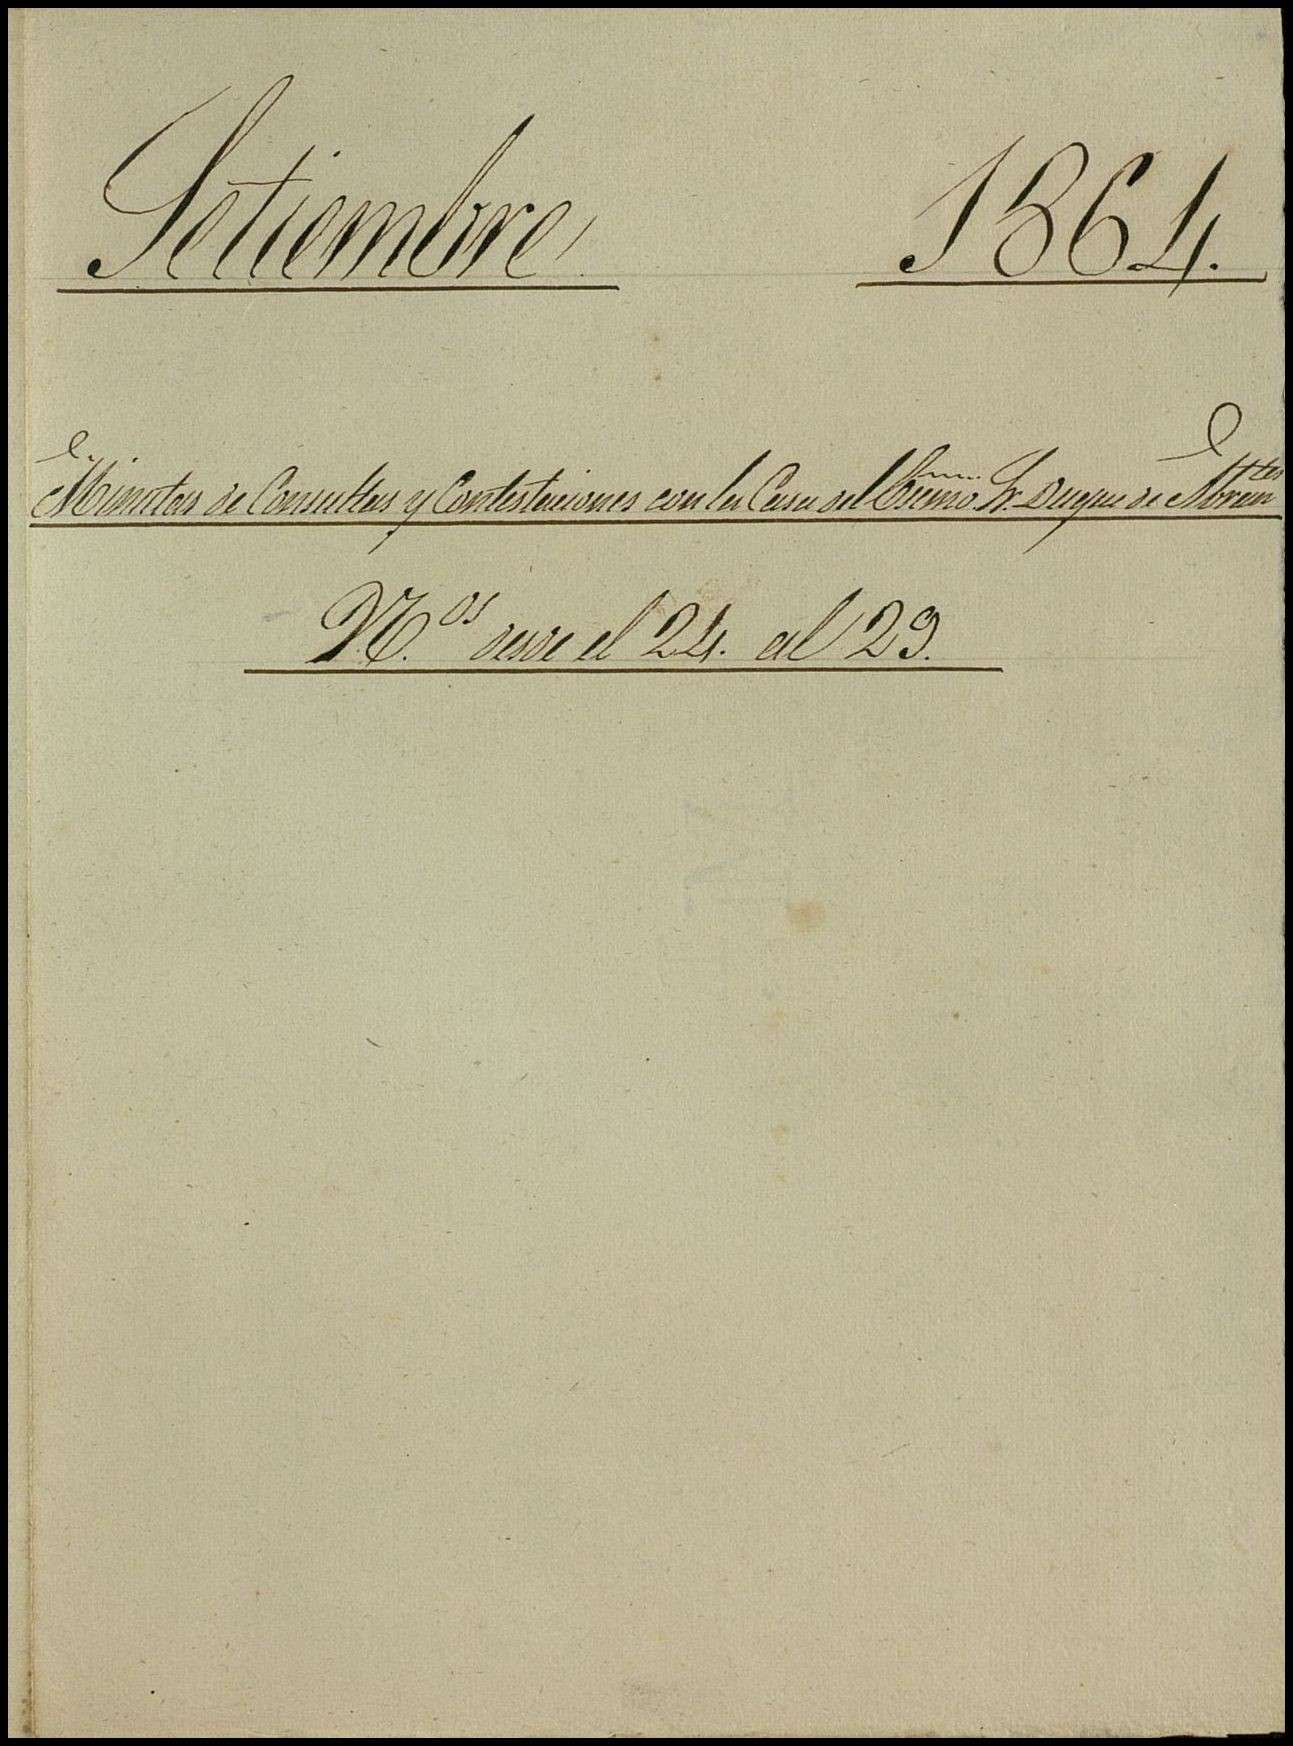 Setiembre 1864.
Minutas de Consultas y Contestaciones con la Casa del Excmo. Sr. Duque de Abrantes
N.os desde el 24. al 29.